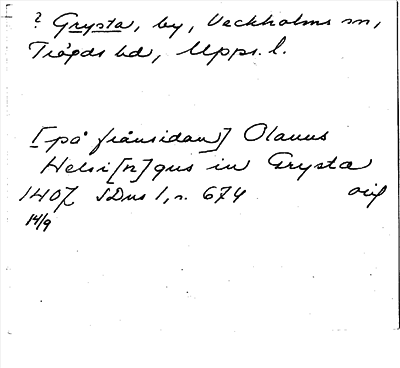 ? Grysta, by, Veckholms sn,
Trögds hd, Upps. l.
[på frånsidan] Olauus
Helsi[n]gus in Grysta
1407 SDns 1, n. 674 orig
14/9